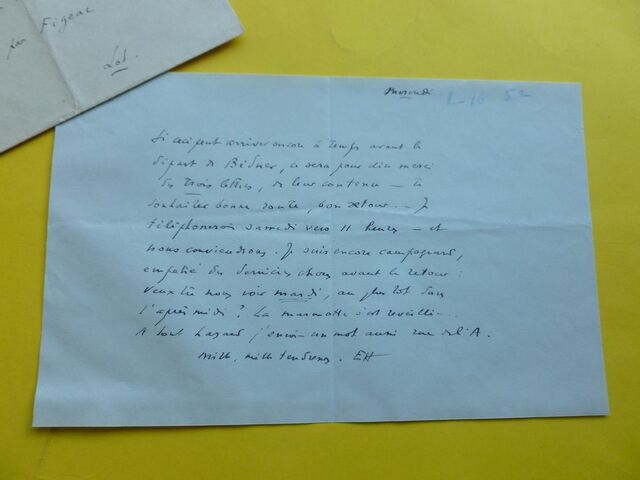 par Figeac
Lot.
1-10 52
Si ceci peut arriver encore à temps avant le
départ de , ce sera pour dire merci
des trois lettres, de leur contenu — te
souhaiter bonne route, bon retour. — Je
téléphonerai samedi vers 11 heures — et
nous conviendrons. Je suis encore campagnard,
empêtré des dernières choses avant le retour :
Veux-tu nous voir mardi, au plus tôt dans
l'après midi ? La marmotte s'est réveillée...
A tout hasard j'envoie un mot aussi rue de l'A.
Mille, mille tendresses. EH